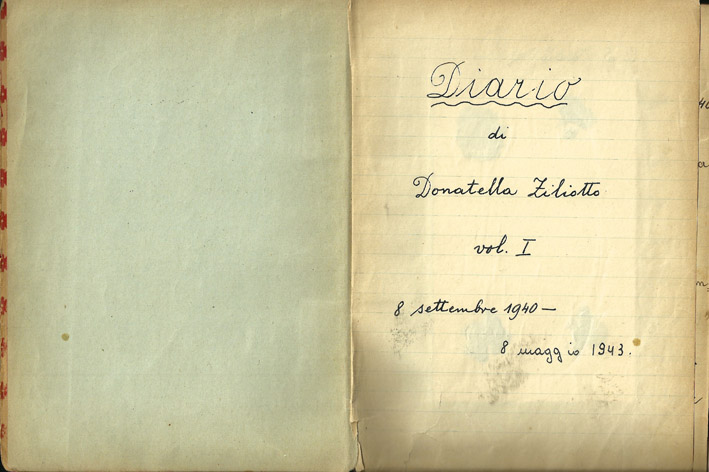 Diario
di
Donatella Ziliotto
vol. I
8 settembre 1940 —
8 maggio 1943.